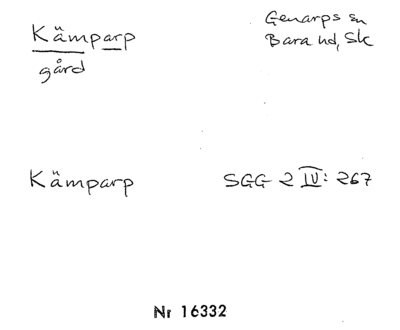 Kämparp
Genarps sn
gård
Bara hd, Sk
Kämparp
SGG 2 IV: 267
Nr 16332